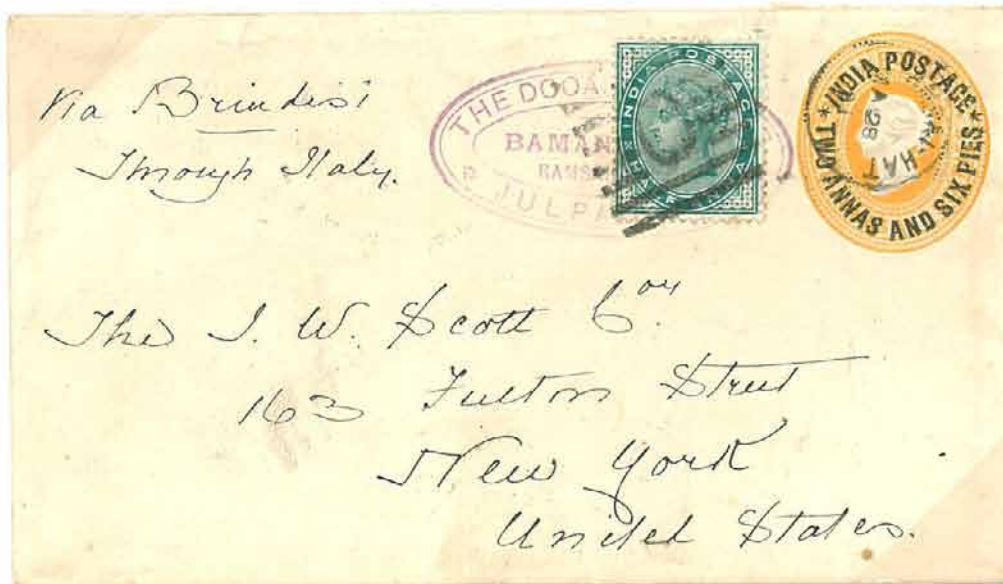 Via Brindisi
Through Italy.
THE DOOA
BAMAN
RAMS
JULP
INDIA POSTAGE
HALF
INDIA POSTAGE
HAT
28
TWO ANNAS AND SIX PIES
The J. W. Scott Coy
163 Fulton Street
New York
United States.